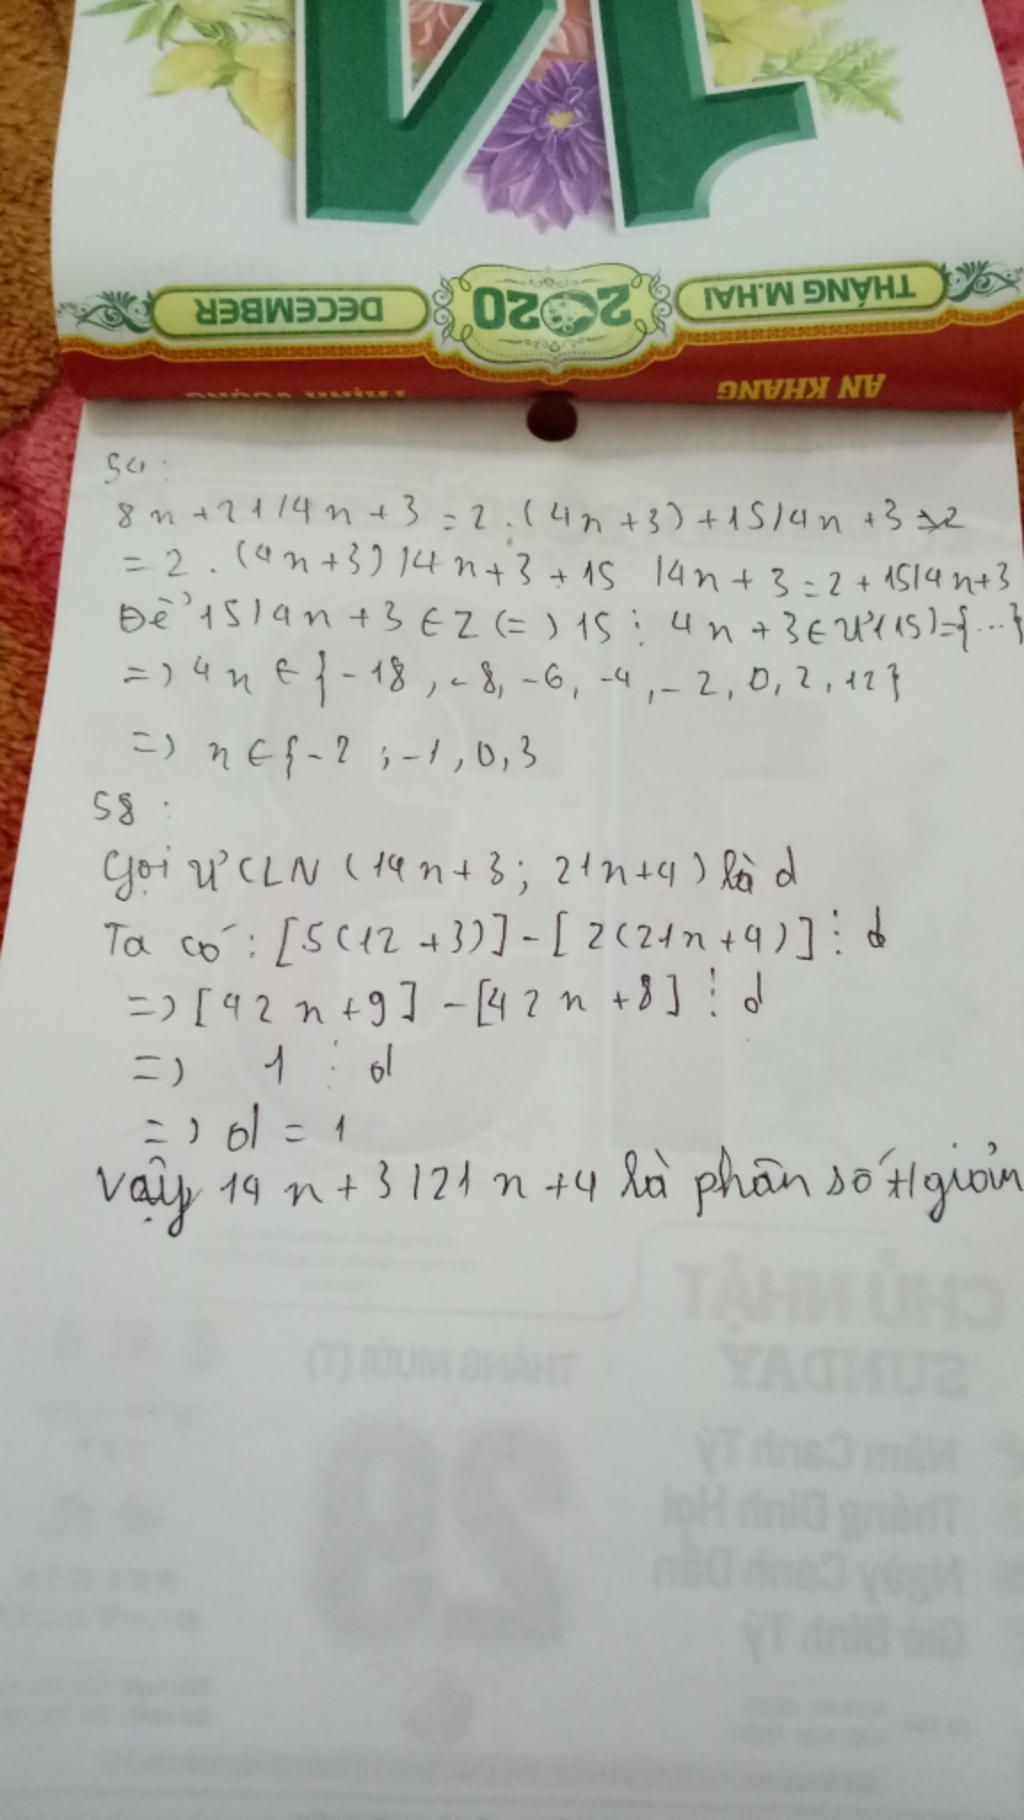 14
THÁNG M.HAI 2020 DECEMBER
AN KHANG THỊNH VƯỢNG
54:
8n+21/4n+3=2.(4n+3)+15/4n+3
=2.(4n+3)/4n+3+15/4n+3=2+15/4n+3
Để 15/4n+3∈Z(=)15⋮4n+3∈Ư(15)={...}
=)4n∈{-18,-8,-6,-4,-2,0,2,12}
=) n∈{-2;-1,0,3
58:
Gọi ƯCLN(14n+3;21n+4) là d
Ta có: [5(12+3)]-[2(21n+4)]⋮d
=)[42n+9]-[42n+8]⋮d
=) 1⋮d
=) d=1
Vậy 14n+3/21n+4 là phân số t/giản
CHỦ NHẬT
SUNDAY
THÁNG MƯỜI (T)
29
Năm Canh Tý
Tháng Đinh Hợi
Ngày Canh Dần
Giờ Bính Tý